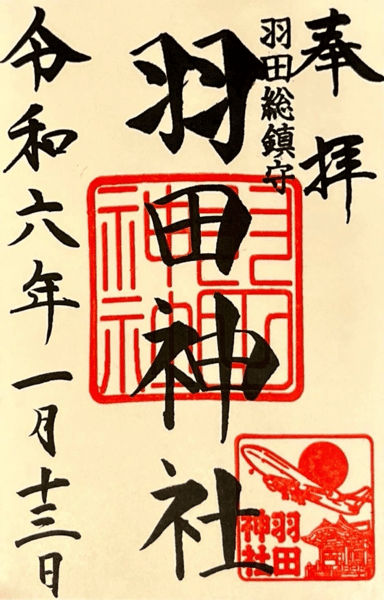 奉拝
羽田総鎮守
羽田神社
令和六年一月十三日
羽田神社
羽田
神社